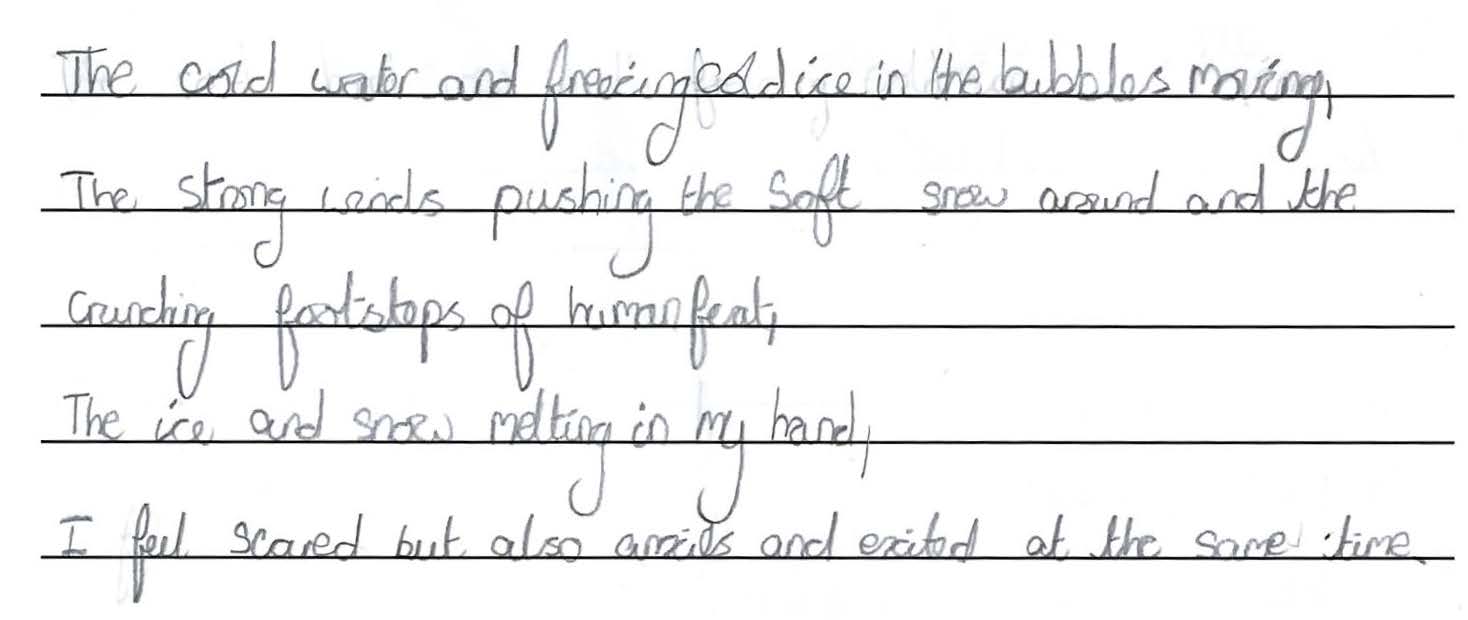 The cold water and freezing cold ice in the bubbles moving,
The strong winds pushing the soft snow around and the
Crunching footsteps of human feat,
The ice and snow melting in my hand,
I feel scared but also and exited at the same time.